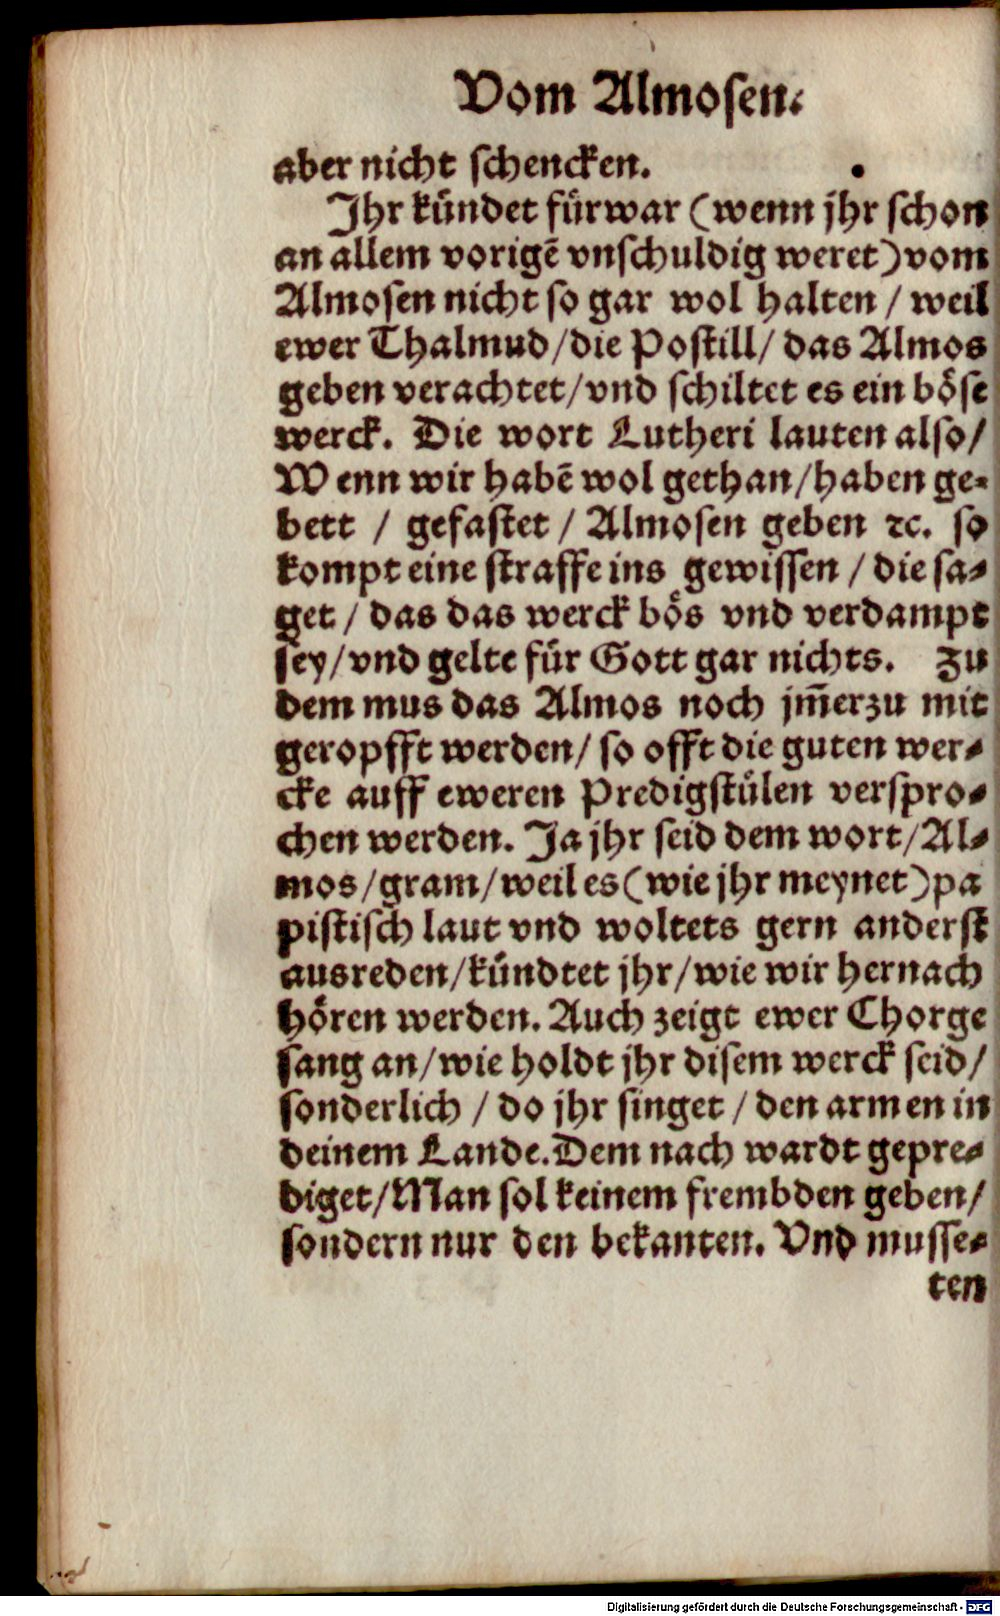 Vom Almosen.
aber nicht schencken.
Jhr kündet fürwar (wenn jhr schon
an allem vorigẽ vnschuldig weret) vom
Almosen nicht so gar wol halten / weil
ewer Thalmud / die Postill / das Almos
geben verachtet / vnd schiltet es ein böse
werck. Die wort Lutheri lauten also /
Wenn wir habẽ wol gethan / haben ge-
bett / gefastet / Almosen geben ꝛc. so
kompt eine straffe ins gewissen / die sa-
get / das das werck bös vnd verdampt
sey / vnd gelte für Gott gar nichts. Zu
dem mus das Almos noch jm̃erzu mit
geropfft werden / so offt die guten wer-
cke auff eweren Predigstülen verspro-
chen werden. Ja jhr seid dem wort / Al-
mos / gram / weil es (wie jhr meynet) pa
pistisch laut vnd woltets gern anderst
ausreden / kündtet jhr / wie wir hernach
hören werden. Auch zeigt ewer Chorge
sang an / wie holdt jhr disem werck seid /
sonderlich / do jhr singet / den armen in
deinem Lande. Dem nach wardt gepre-
diget / Man sol keinem frembden geben /
sondern nur den bekanten. Vnd musse-
ten
Digitalisierung gefördert durch die Deutsche Forschungsgemeinschaft - DFG